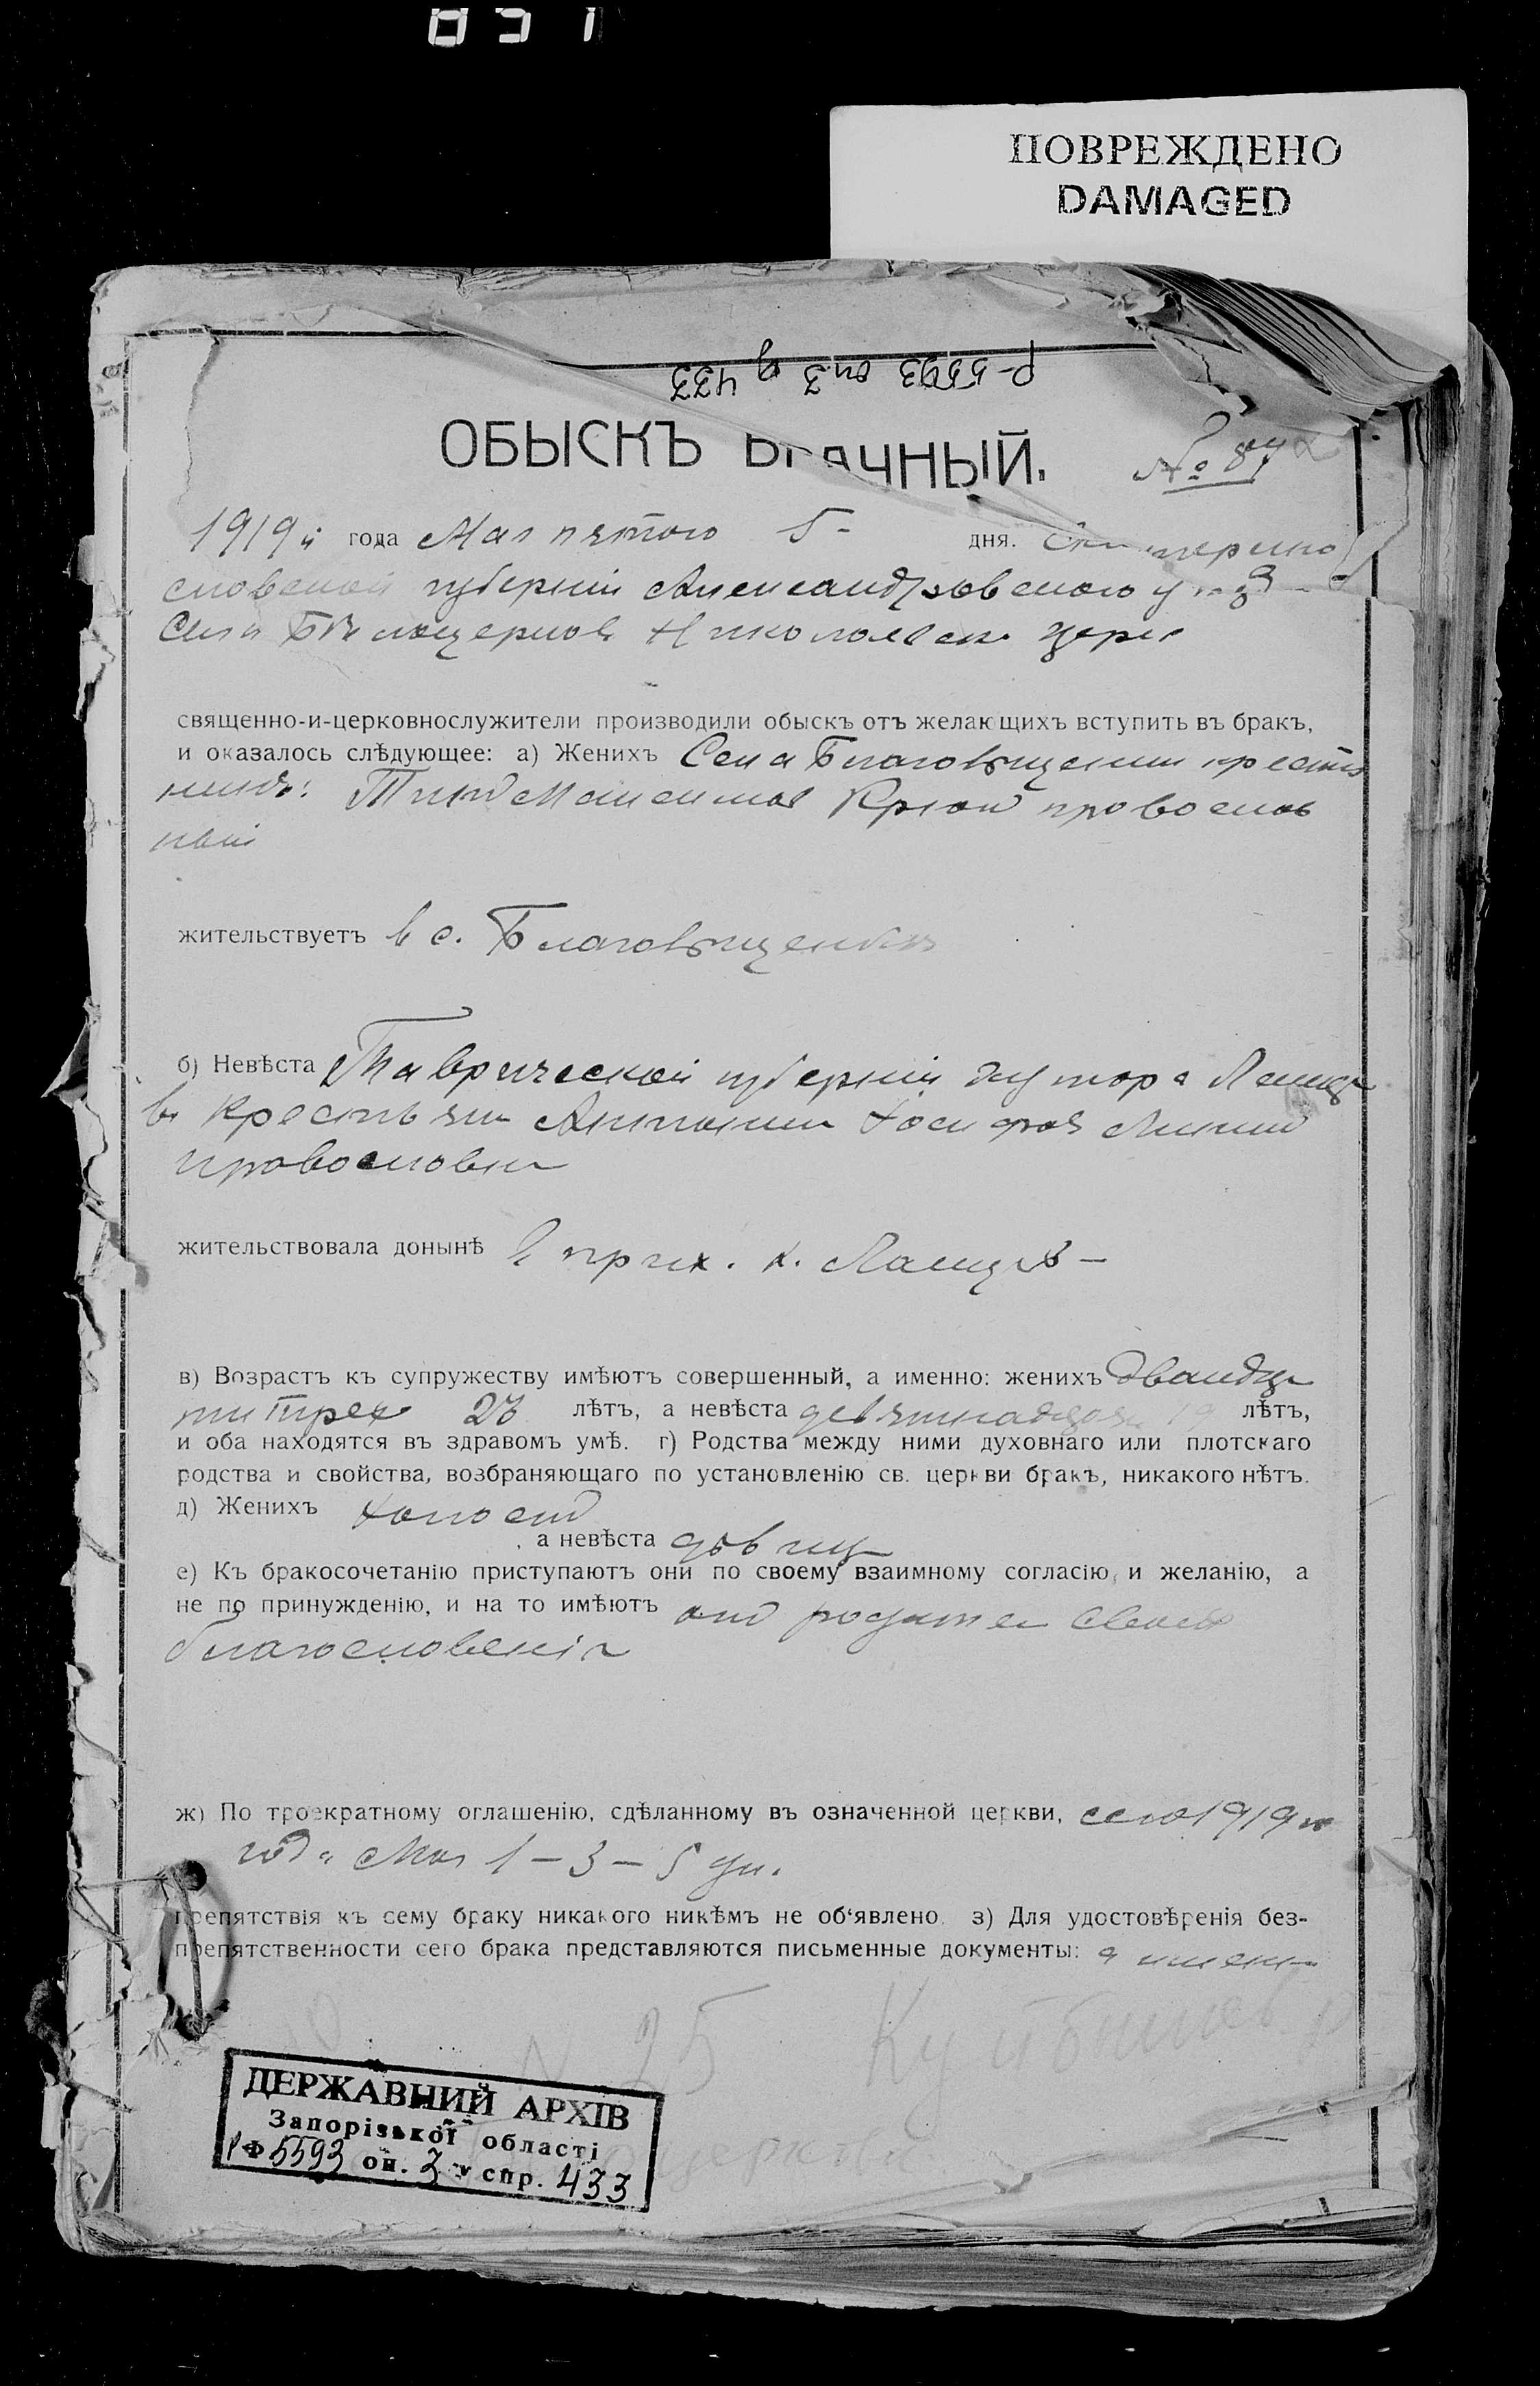 ПОВРЕЖДЕНО
DAMAGED
р-5593 оп 3 д 433
ОБЫСКЪ БРАЧНЫЙ.
№ 87
1919 й года Мая пятого 5- дня. Екатерино
славской губерніи Александровского
Села Николаевск церк
священно-и-церковнослужители производили обыскъ отъ желающихъ вступить въ бракъ,
и оказалось слѣдующее: а) Женихъ Села Благовѣщенки крестья
нинъ: Максимов Крюк православ
ный
жительствуетъ в с. Благовѣщенкѣ
б) Невѣста Таврической губерніи хутора
православн
жительствовала донынѣ в прих. х.
в) Возрастъ къ супружеству имѣютъ совершенный, а именно: женихъ двандца
ти трех 23 лѣтъ, а невѣста девятнадцать 19 лѣтъ,
и оба находятся въ здравомъ умѣ. г) Родства между ними духовнаго или плотскаго
родства и свойства, возбраняющаго по установленію св. церкви бракъ, никакого нѣтъ.
д) Женихъ холост
, а невѣста дѣвиц
е) Къ бракосочетанію приступаютъ они по своему взаимному согласію, и желанію, а
не по принужденію, и на то имѣютъ от родител своих
благословенія
ж) По троекратному оглашенію, сдѣланному въ означенной церкви, сего 1919 го
года Мая 1 – 3 – 5 дн.
препятствія къ сему браку никакого никѣмъ не об‘явлено. з) Для удостовѣренія без-
препятственности сего брака представляются письменные документы: а именн
N 25 Куйбишев
ДЕРЖАВНИЙ АРХІВ
Запорізької області
Р Ф 5593 оп. 3 спр. 433